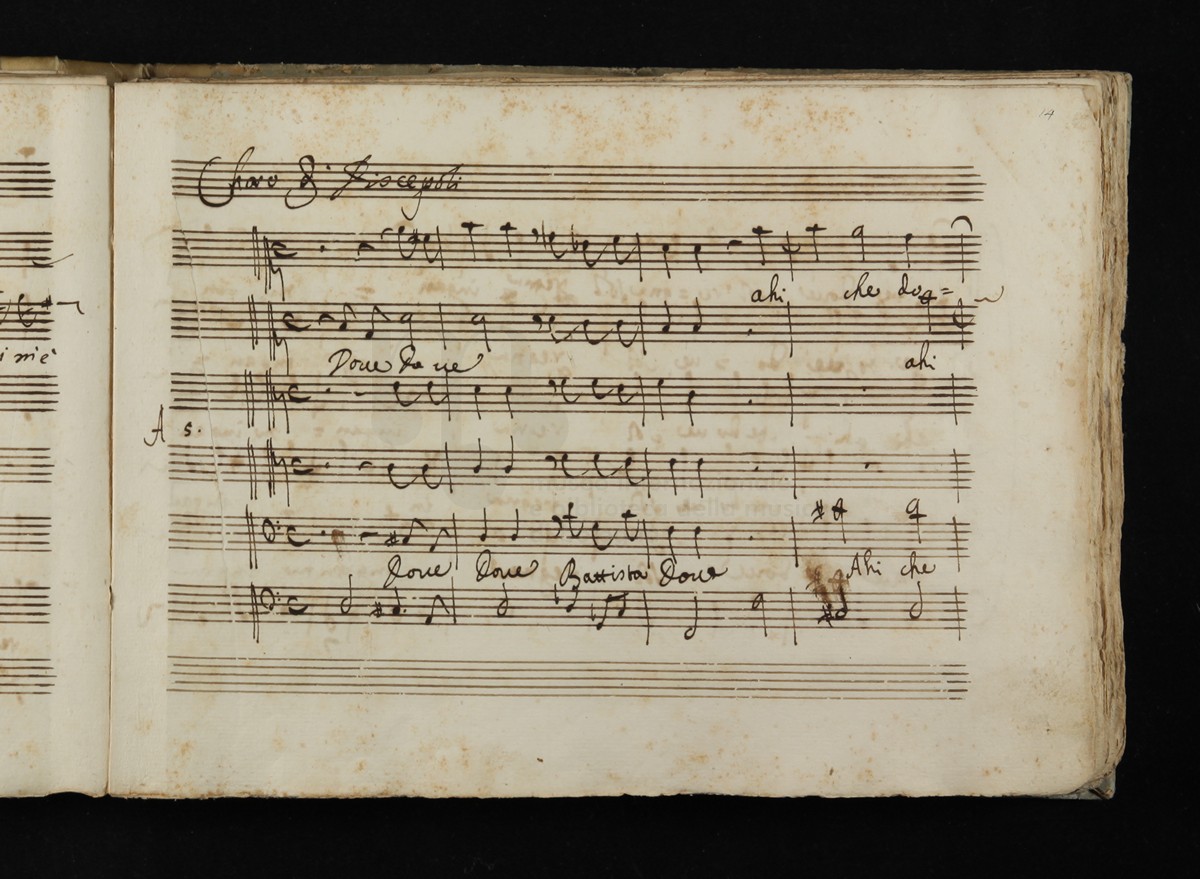 14
Choro di Discepoli
ahi che do=
Doue Do ue ahi
A 5.
Doue Doue Battista Doue Ahi che